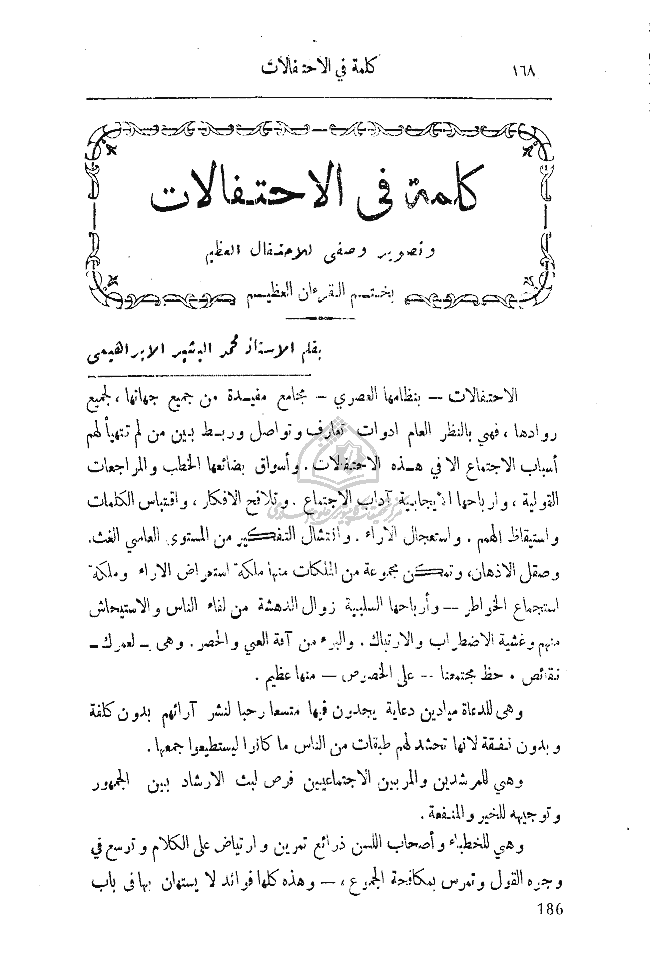 ١٦٨ كلمة في الاحتفالات
كلمة في الاحتفالات
وتصوير وصفي للاحتفال العظيم
بختم القرءان العظيم
بقلم الاستاذ محمد البشير الابراهيمي
الاحتفالات — بنظامها العصري — مجامع مفيدة من جميع جهاتها ، لجميع
روادها ، فهي بالنظر العام ادوات تعارف وتواصل وربط بين من لم تتهيأ لهم
أسباب الاجتماع الا في هذه الاحتفالات . وأسواق بضائعها الخطب والمراجعات
القولية ، وارباحها الايجابية آداب الاجتماع . وتلاقح الافكار ، واقتباس الكلمات
واستيقاظ الهمم . واستعجال الاراء . وانتشال التفكير من المستوى العامي الغث.
وصقل الاذهان، وتمكن مجموعة من الملكات منها ملكة استعراض الاراء وملكة
استجماع الخواطر — وأرباحها السلبية زوال الدهشة من لقاء الناس والاستيحاش
منهم وغشية الاضطراب والارتباك . والبرء من آفة العي والحصر . وهي ــ لعمرك ــ
نقائص . حظ مجتمعنا -- على الخصوص — منها عظيم .
وهي للدعاة ميادين دعاية يجدون فيها متسعا رحبا لنشر آرائهم بدون كلفة
و بدون نفقة لانها تحشد لهم طبقات من الناس ما كانوا ليستطيعوا جمعها .
وهي للمرشدين والمربين الاجتماعيين فرص لبث الارشاد بين الجمهور
وتوجيهه للخير والمنفعة .
وهي للخطباء وأصحاب اللسن ذرائع تمرين وارتياض على الكلام وتوسع في
وجوه القول وتمرس بمكافحة الجموع ، — وهذه كلها فوائد لا يستهان بها في باب
186